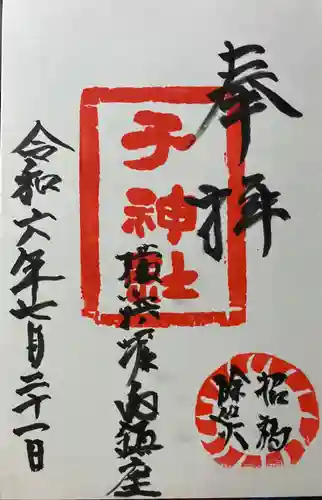 奉拝
子神社
横浜濱
鎮座
令和六年七月二十一日
招福
除災